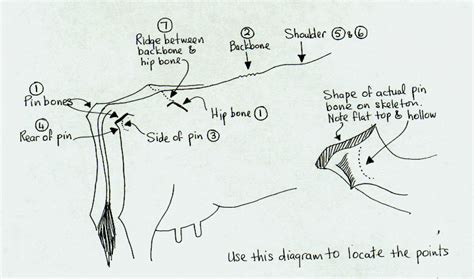 ⑦
Ridge between
backbone &
hip bone
②
Backbone
Shoulder ⑤ & ⑥
①
Pin bones
④
Rear of pin
Side of pin ③
Hip bone ①
Shape of actual pin
bone on skeleton.
Note flat top & hollow
Use this diagram to locate the points